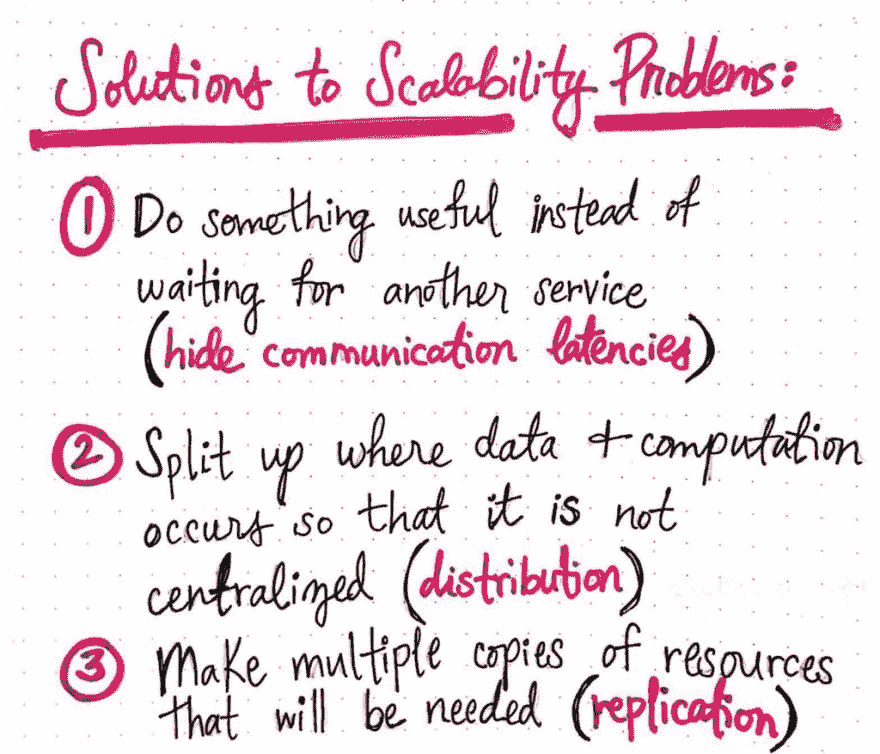 Solutions to Scalability Problems:
① Do something useful instead of
waiting for another service
(hide communication latencies)
② Split up where data + computation
occurs so that it is not
centralized (distribution)
③ Make multiple copies of resources
that will be needed (replication)